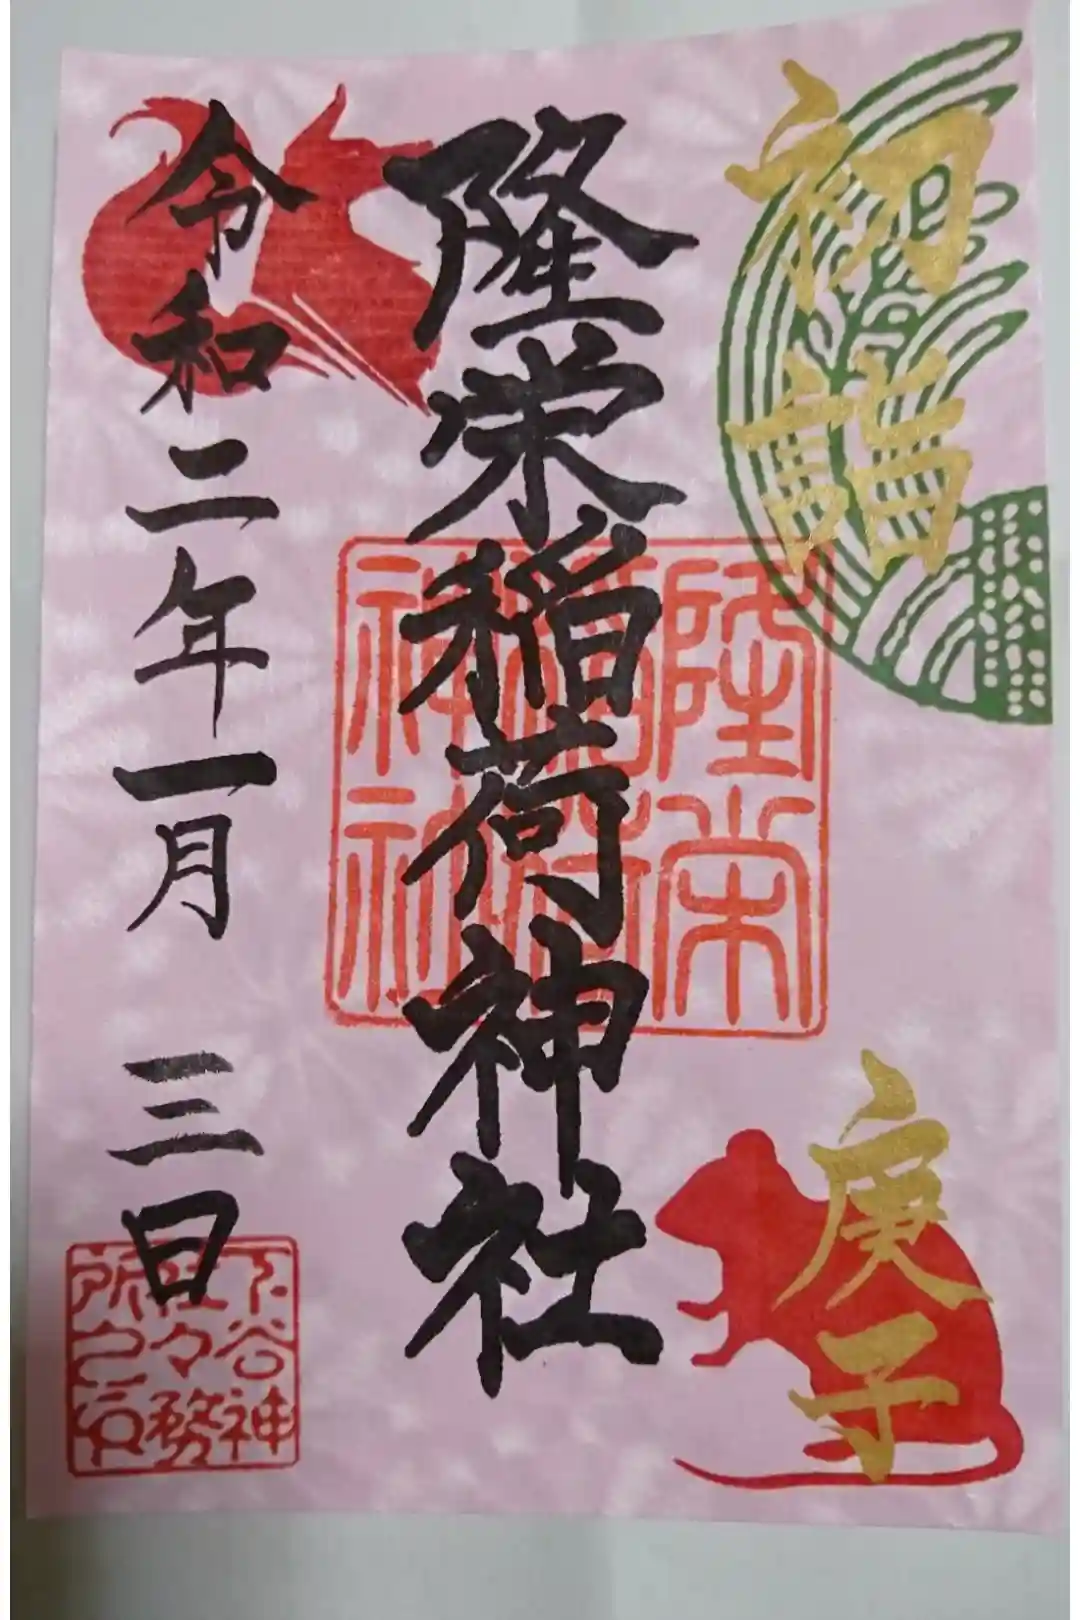 初詣
庚子
隆栄稲荷神社
令和二年一月 三日
隆栄
稲荷
神社
下谷神
社々務
所之印